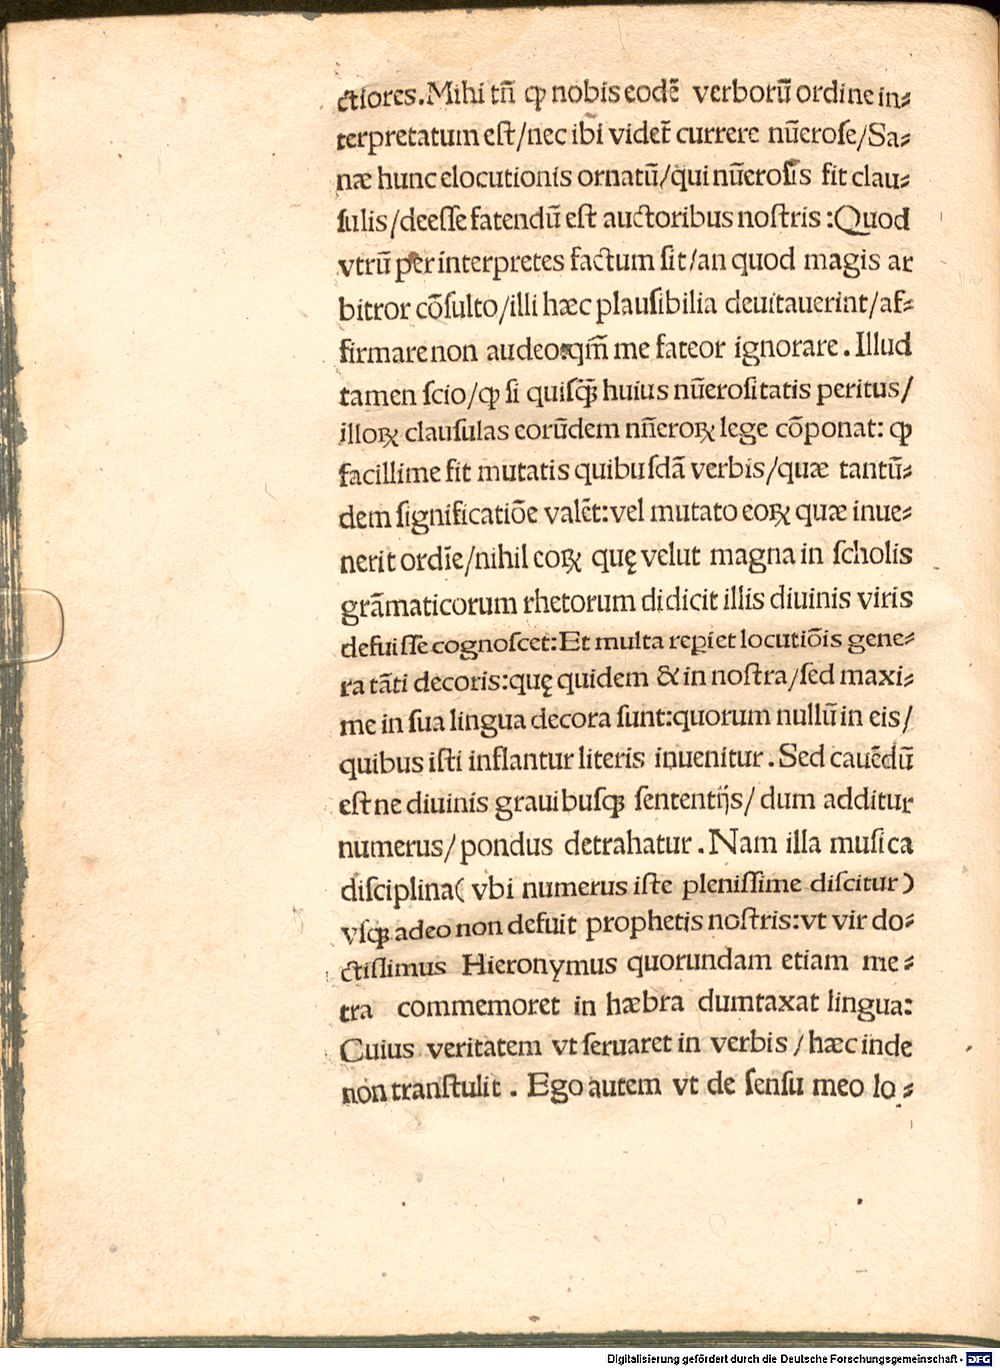 ctiores.Mihi tñ ꝙ nobis eodẽ verborũ ordine in⸗
terpretatum eſt/nec ibi videt̃ currere nũeroſe/Sa⸗
næ hunc elocutionis ornatũ/qui nũeroſis fit clau⸗
ſulis/deeſſe fatendũ eſt auctoribus noſtris:Quod
vtrũ per interpretes factum ſit/an quod magis ar
bitror cõſulto/illi hæc plauſibilia deuitauerint/af⸗
firmare non audeo:qm̃ me fateor ignorare.Illud
tamen ſcio/ꝙ ſi quiſq̃ꝫ huius nũeroſitatis peritus/
illoꝝ clauſulas eorũdem nũeroꝝ lege cõponat: ꝙ
facillime fit mutatis quibuſdã verbis/quæ tantũ⸗
dem ſignificatiõe valẽt:vel mutato eoꝝ quæ inue⸗
nerit ordĩe/nihil eoꝝ quę velut magna in ſcholis
grãmaticorum rhetorum didicit illis diuinis viris
defuiſſe cognoſcet:Et multa reꝑiet locutiõis gene⸗
ra tãti decoris:quę quidem & in noſtra/ſed maxi⸗
me in ſua lingua decora ſunt:quorum nullũ in eis/
quibus iſti inflantur literis inuenitur.Sed cauẽdũ
eſt ne diuinis grauibuſqꝫ ſententijs/dum additur
numerus/pondus detrahatur.Nam illa muſica
diſciplina( vbi numerus iſte pleniſſime diſcitur)
vſqꝫ adeo non defuit prophetis noſtris:vt vir do⸗
ctiſſimus Hieronymus quorundam etiam me⸗
tra commemoret in hæbra dumtaxat lingua:
Cuius veritatem vt ſeruaret in verbis/hæc inde
non tranſtulit. Ego autem vt de ſenſu meo lo⸗
Digitalisierung gefördert durch die Deutsche Forschungsgemeinschaft - DFG